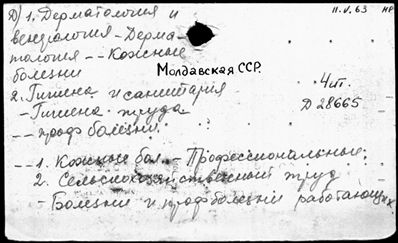 Д) 1. Дерматология и II.V.63 НР
венерология - Дерма-
тология -- Кожные
болезни
Молдавская ССР.
2. Гигиена и санитария 4 шт.
- Гигиена труда Д 28665
-- проф болезни.
-- 1. Кожные бол. - Профессиональные.
2. Сельскохозяйственный труд
- Болезни и проф болезни работающих